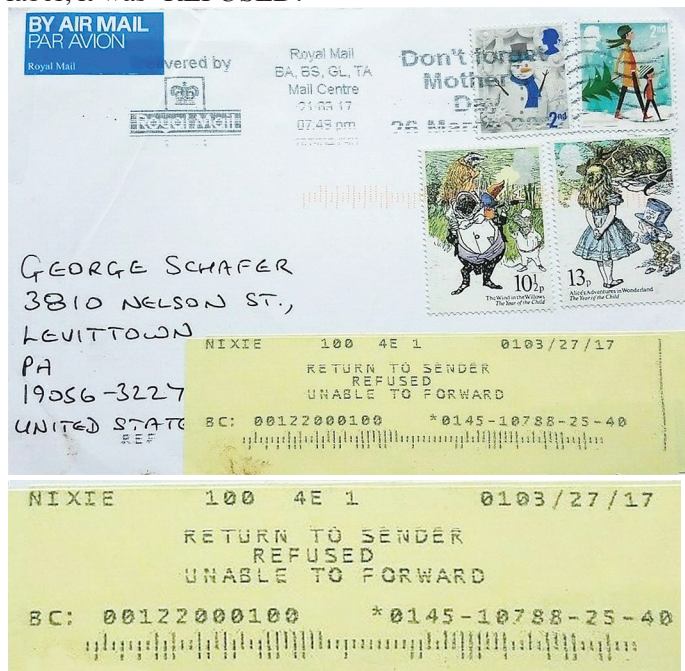 BY AIR MAIL
PAR AVION
Royal Mail
vered by
Royal Mail
Royal Mail
BA, BS, GL, TA
Mail Centre
21-03-17
07:45 pm
Don't forget
Mother
Day
26 Mar
2nd
2nd
10½p
The Wind in the Willows
The Year of the Child
13p
Alice's Adventures in Wonderland
The Year of the Child
GEORGE SCHAFER
3810 NELSON ST.,
LEVITTOWN
PA
19056-3227
UNITED STATE
REF
NIXIE 100 4E 1 0103/27/17
RETURN TO SENDER
REFUSED
UNABLE TO FORWARD
BC: 00122000100 *0145-10788-25-40
NIXIE 100 4E 1 0103/27/17
RETURN TO SENDER
REFUSED
UNABLE TO FORWARD
BC: 00122000100 *0145-10788-25-40